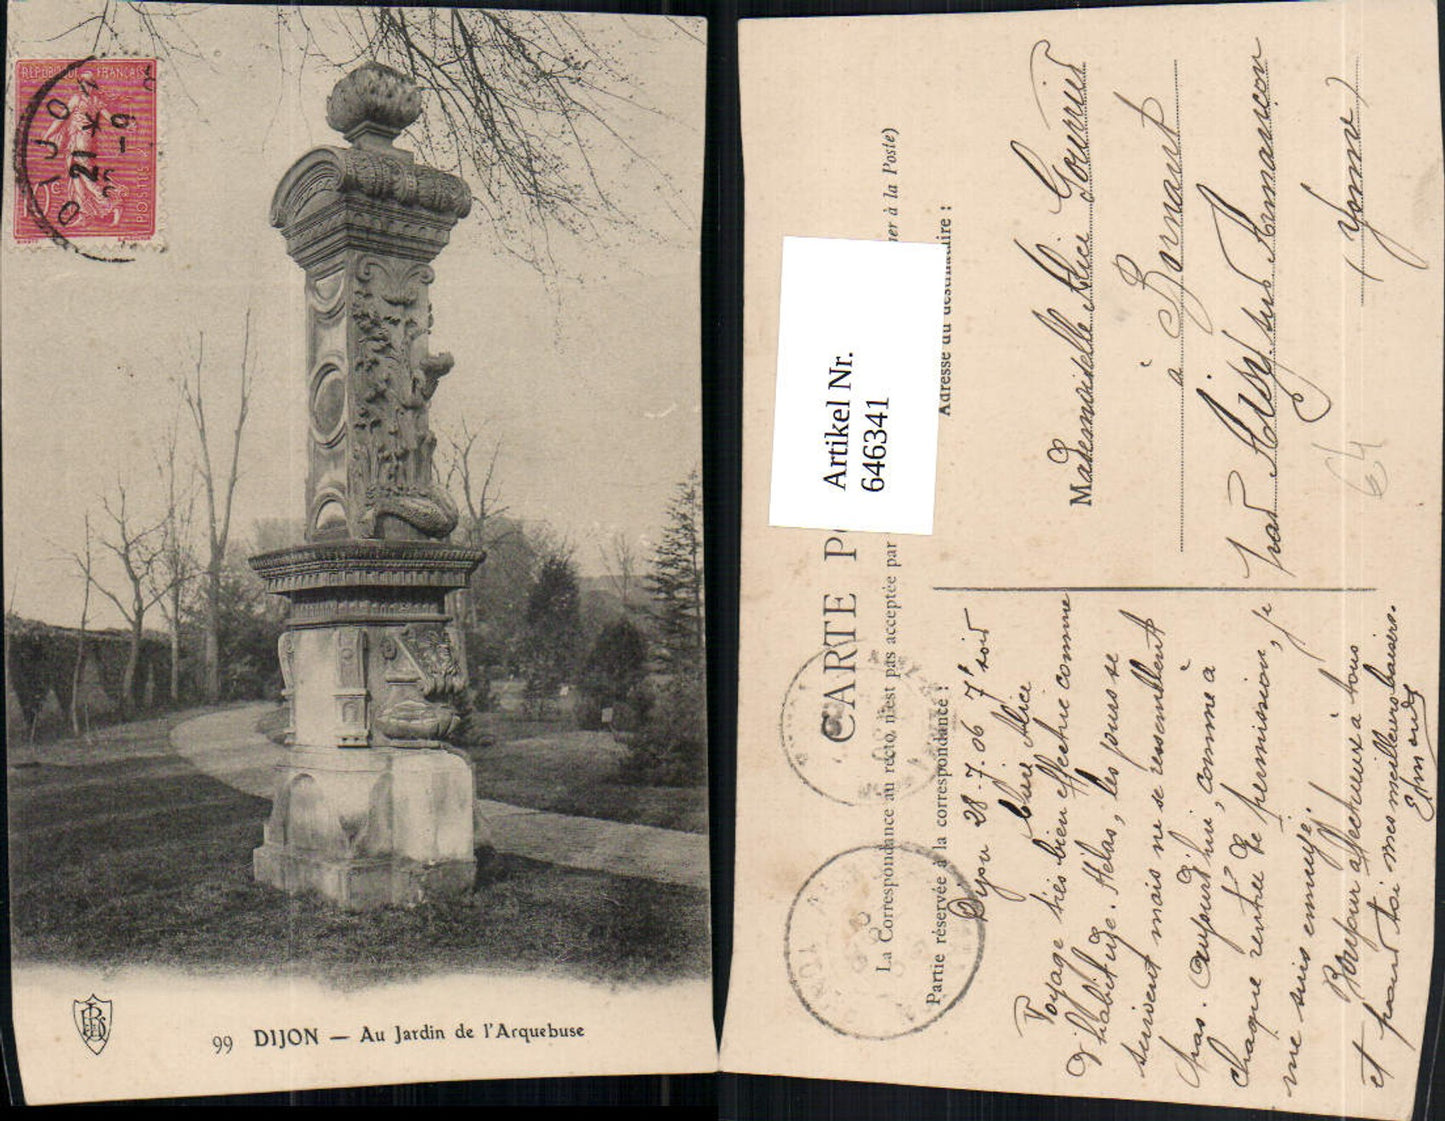 RÉPUBLIQUE FRANÇAISE
10c
POSTES
DIJON
21
-9
99 DIJON — Au Jardin de l'Arquebuse
CARTE PO
La Correspondance au recto n'est pas acceptée par
ner à la Poste)
Partie réservée à la correspondance :
Adresse du destinataire :
Artikel Nr.
646341
Dijon 28-7-06 7h soir
Chère Alice
Voyage très bien effectué comme
d'habitude. Hélas, les jours se
suivent mais ne se ressemblent
pas. Aujourd'hui, comme à
chaque rentrée de permission, je
me suis ennuyé.
Bonjour affectueux à tous
et pour toi mes meilleurs baisers.
Edmond
Mademoiselle Alice
à
par Aisy sur Armançon
(Yonne)
64